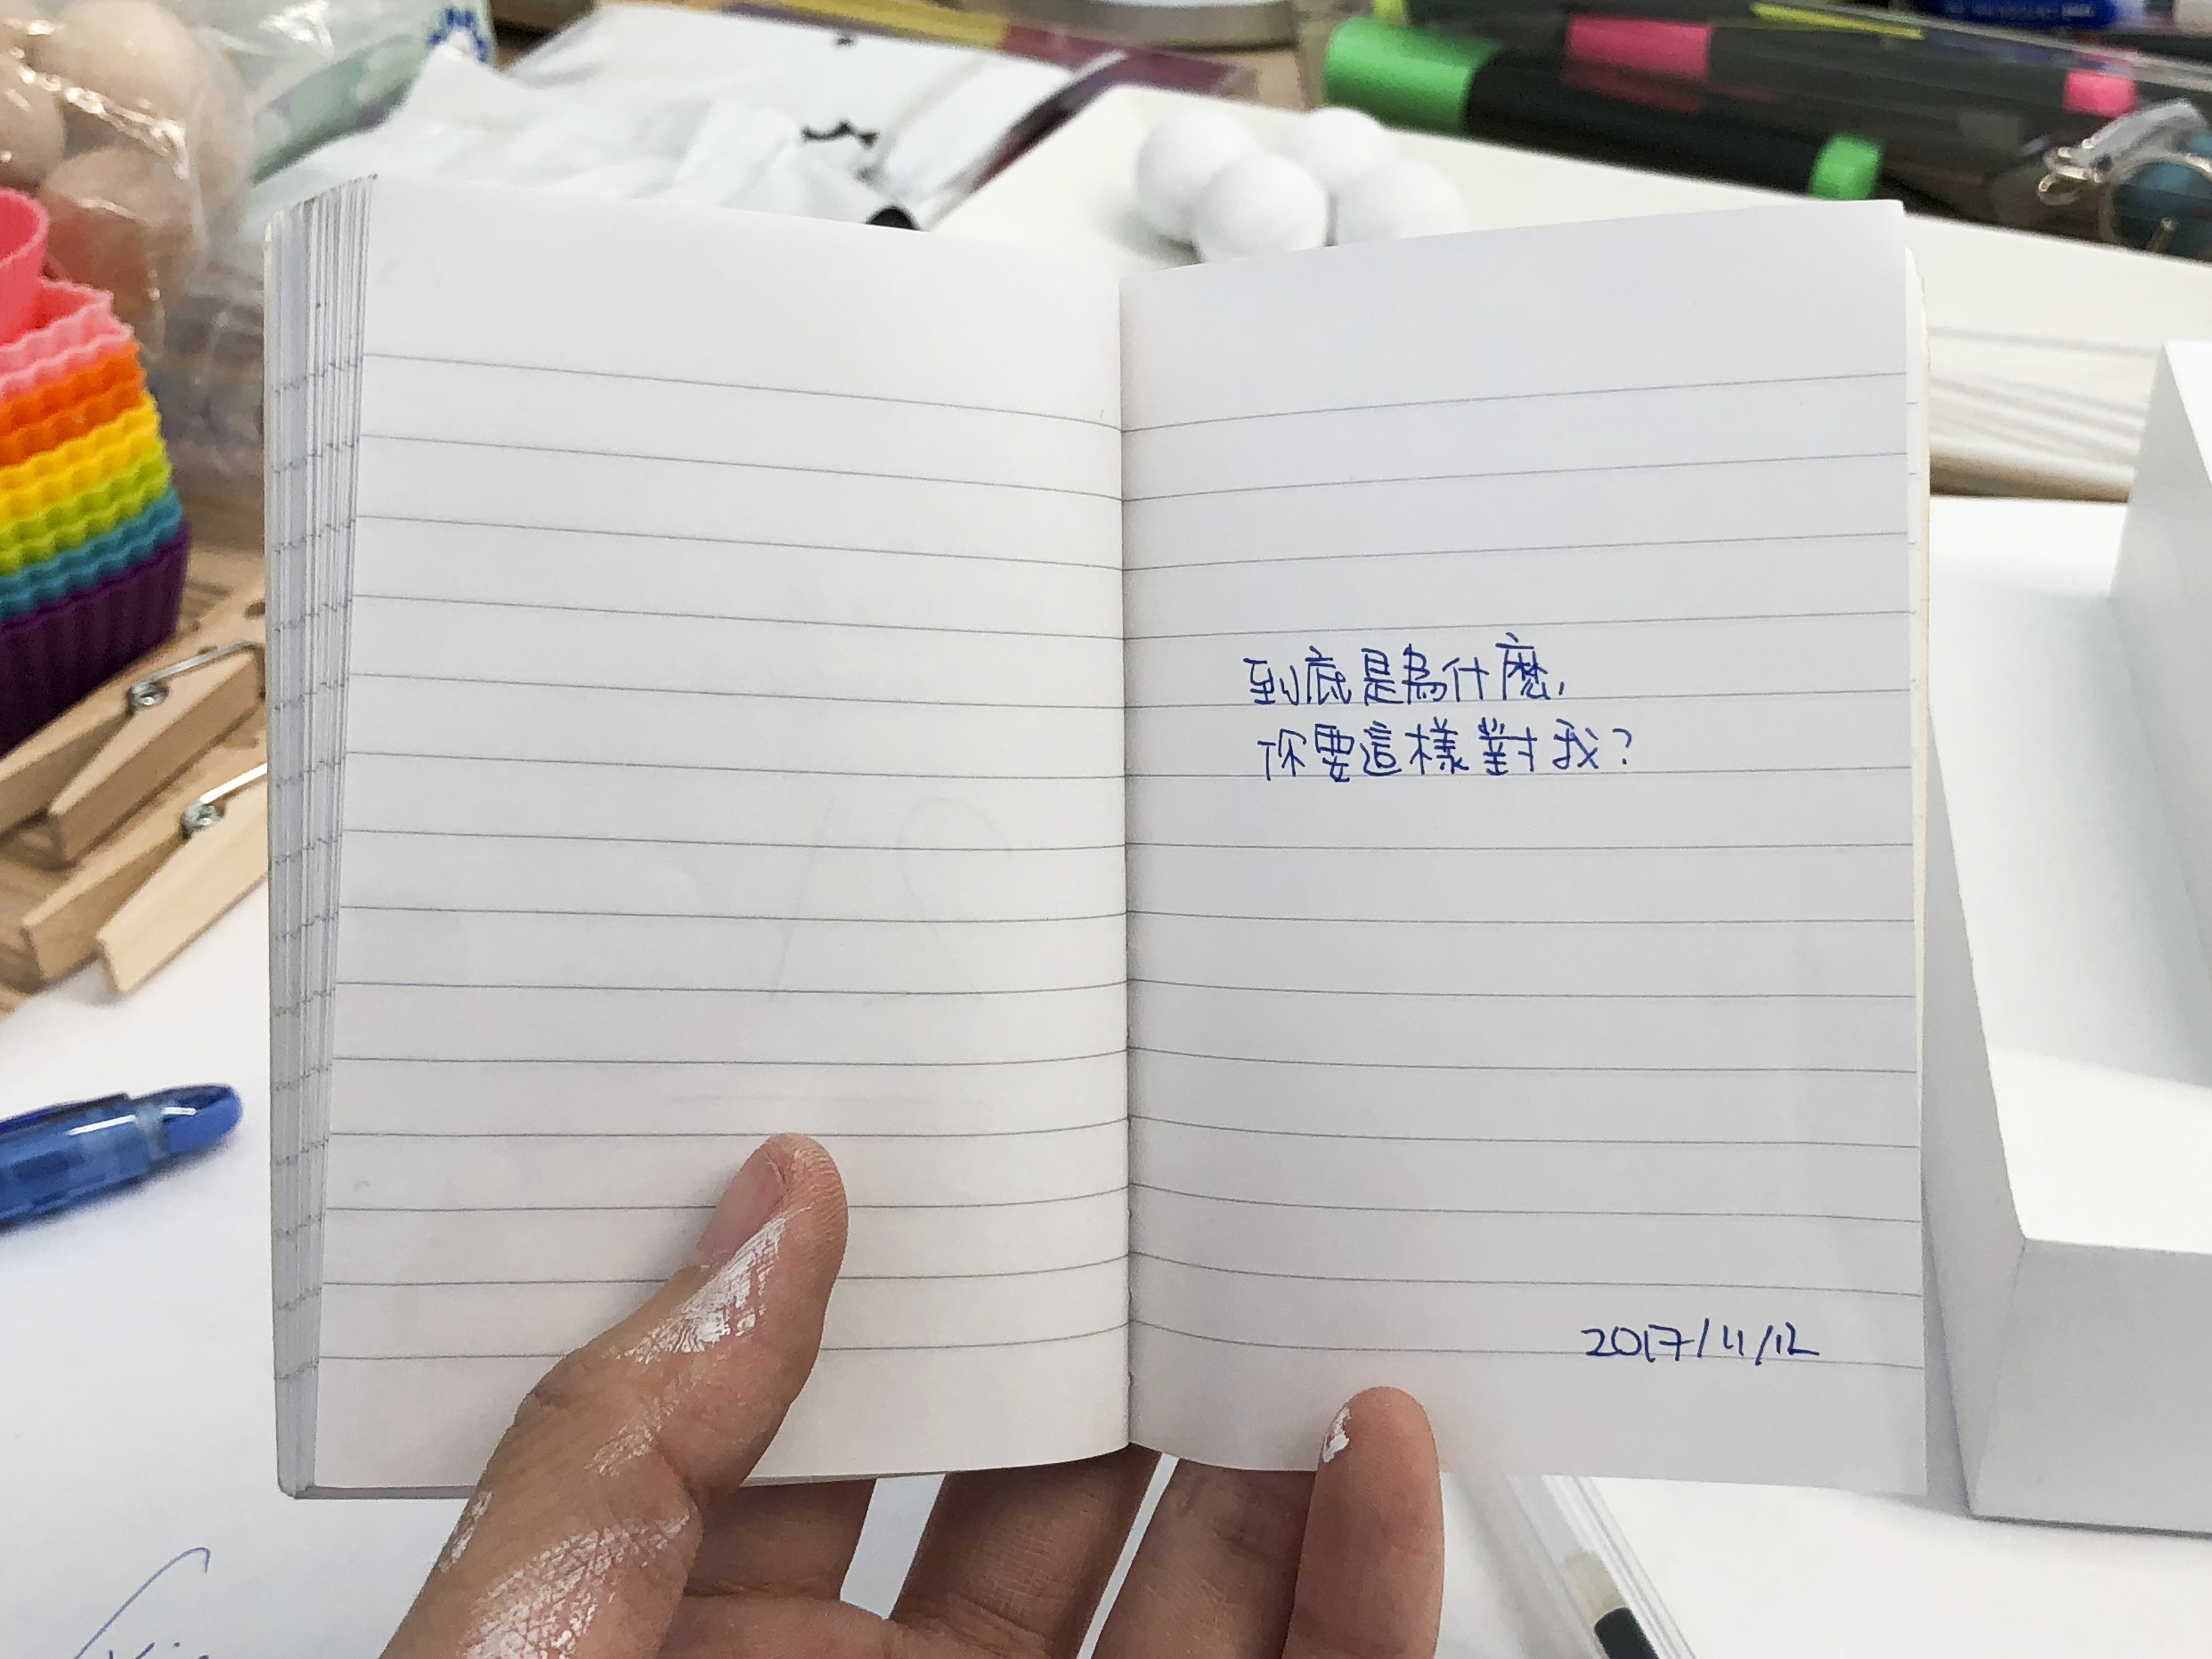 到底是為什麼,
你要這樣對我?
2017/11/12